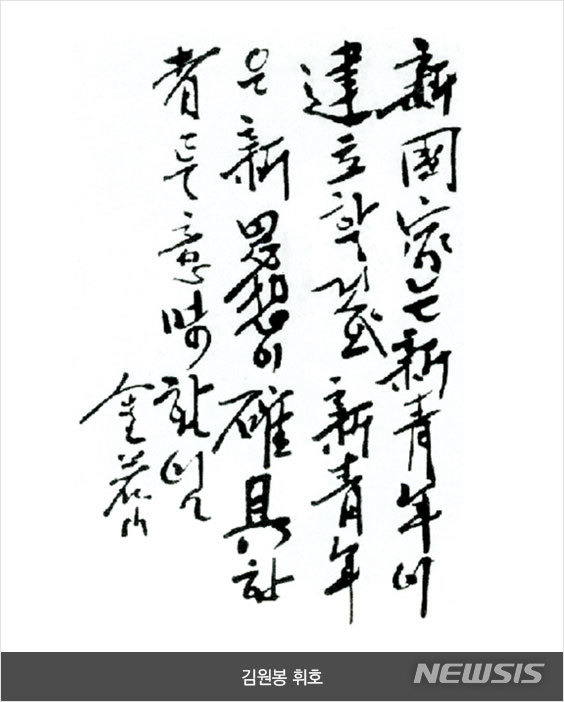 新國家는新青年이
建立할 新青年
은新思想이確具한
者를意味
金若山
김원봉 휘호
NEWSIS